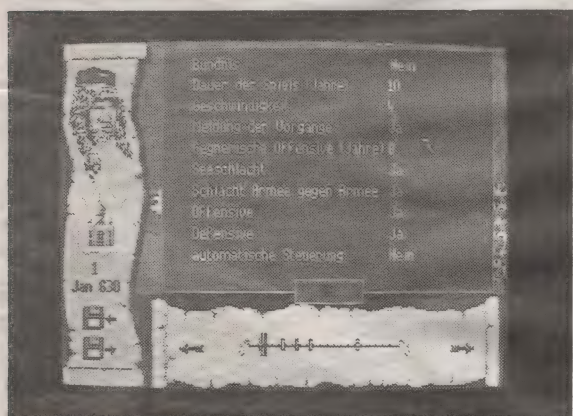 Bündnis Nein
Dauer des Spiels (Jahre) 10
Geschwindigkeit
Meldung der Vorgänge Ja
Gegnerische Offensive (Jahre) 0
Seeschlacht Ja
Schlacht Armee gegen Armee Ja
Offensive Ja
Defensive Ja
automatische Steuerung Nein
1
Jan 630